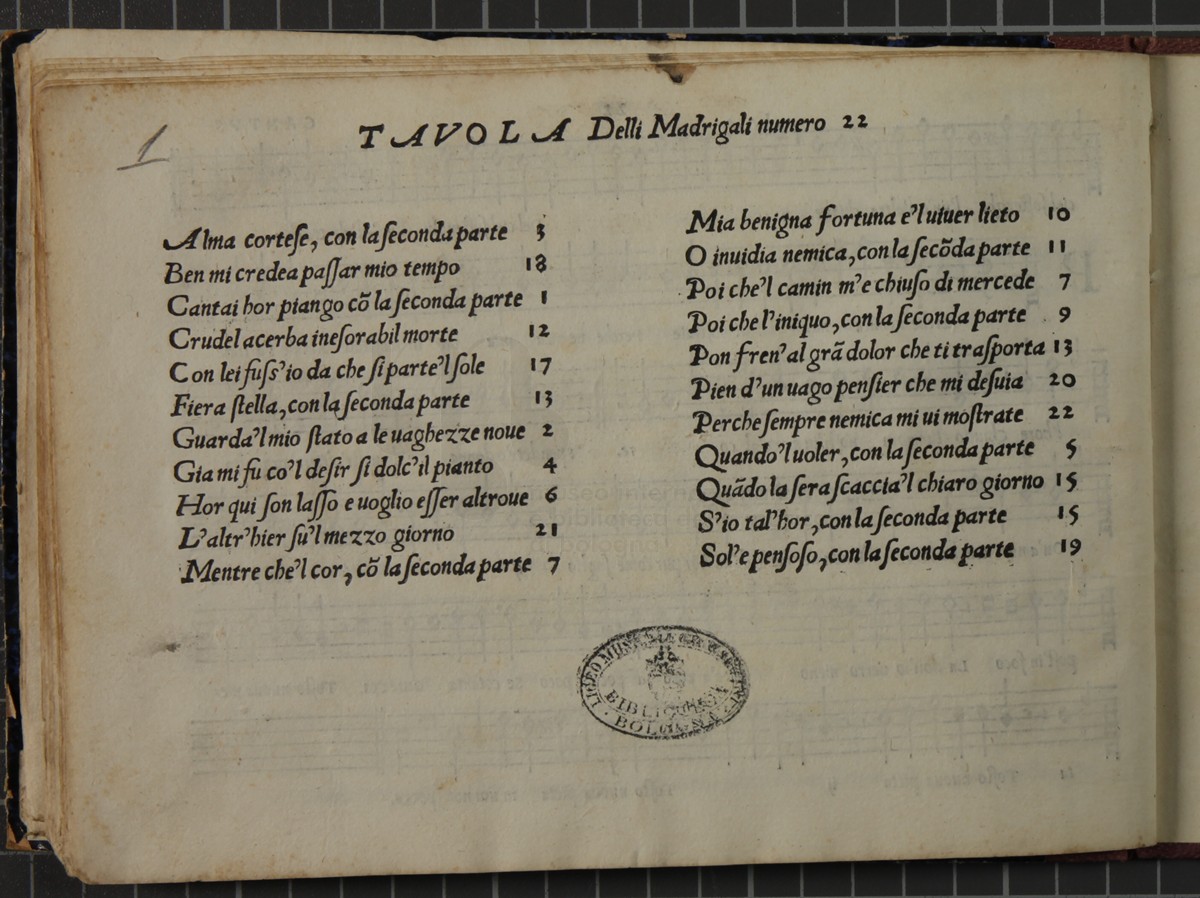 1
TAVOLA Delli Madrigali numero 22
Alma corteſe, con la ſeconda parte 3
Ben mi credea paſſar mio tempo 18
Cantai hor piango cõ la ſeconda parte 1
Crudel acerba ineſorabil morte 12
Con lei fuſs'io da che ſi parte'l ſole 17
Fiera ſtella, con la ſeconda parte 13
Guarda'l mio ſtato a le uaghezze noue 2
Gia mi fù co'l deſir ſi dolc'il pianto 4
Hor qui ſon laſſo e uoglio eſſer altroue 6
L'altr'hier ſu'l mezzo giorno 21
Mentre che'l cor, cõ la ſeconda parte 7
Mia benigna fortuna e'l uiuer lieto 10
O inuidia nemica, con la ſecõda parte 11
Poi che'l camin m'e chiuſo di mercede 7
Poi che l'iniquo, con la ſeconda parte 9
Pon fren'al grã dolor che ti traſporta 13
Pien d'un uago penſier che mi deſuia 20
Perche ſempre nemica mi ui moſtrate 22
Quando'l uoler, con la ſeconda parte 5
Quãdo la ſera ſcaccia'l chiaro giorno 15
S'io tal'hor, con la ſeconda parte 15
Sol'e penſoſo, con la ſeconda parte 19
BIBLIOTECA
BOLOGNA